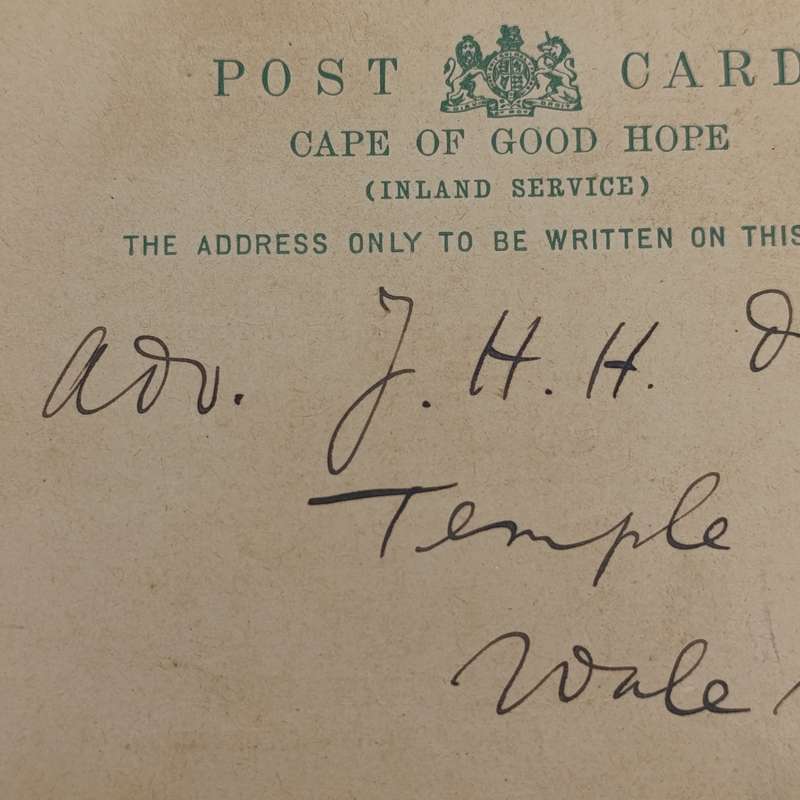 POST CARD
CAPE OF GOOD HOPE
(INLAND SERVICE)
THE ADDRESS ONLY TO BE WRITTEN ON THIS
Adv. J. H. H.
Temple
Wale